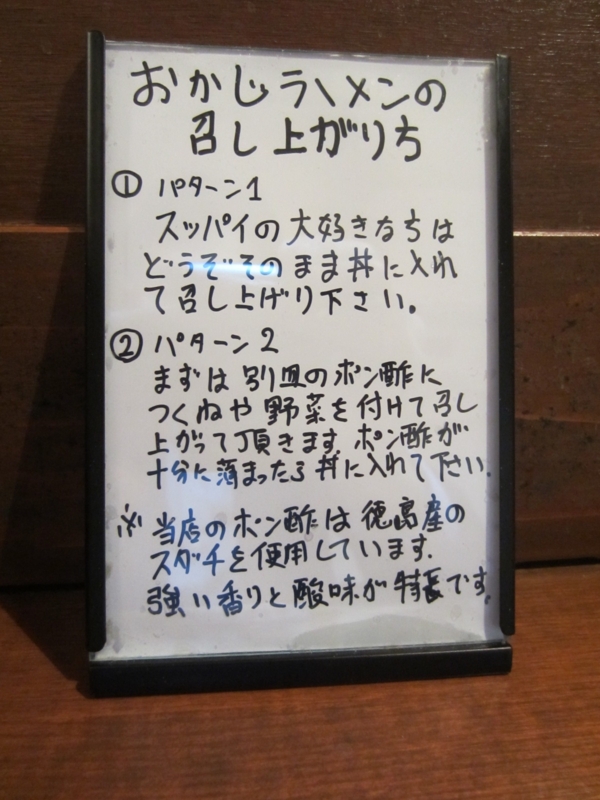 おかじラーメンの
召し上がり方
① パターン1
スッパイの大好きな方は
どうぞそのまま丼に入れ
て召し上げり下さい。
② パターン2
まずは別皿のポン酢に
つくねや野菜を付けて召し
上がって頂きます。ポン酢が
十分に薄まったら丼に入れて下さい。
※ 当店のポン酢は徳島産の
スダチを使用しています。
強い香りと酸味が特長です。